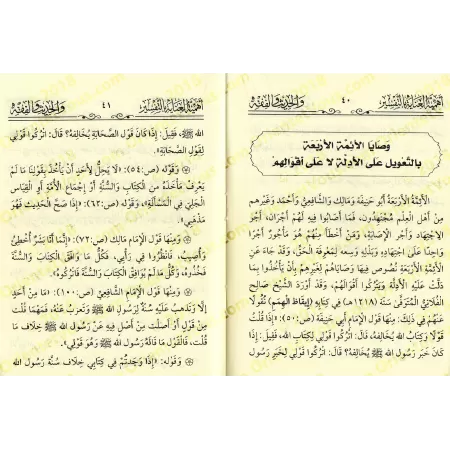 أهمية العناية بالتفسير ٤٠ والحديث والفقه
وصايا الأئمة الأربعة
بالتعويل على الأدلة لا على أقوالهم
الأئِمَّة الأربعة أبو حنيفة ومالك والشافعي وأحمد وغيرهم
من أهل العلم مجتهدون، فما أصابوا فيه لهم أجران، أجر
الاجتهاد وأجر الإصابة، ومن أخطأ منهم هو مأجور أجرًا
واحدًا على اجتهاده وبذله وسعه لمعرفة الحق، وقد جاء عن
الأئمة الأربعة نصوص فيها وصاياهم لغيرهم بأن يأخذوا بما
دلَّت عليه الأدلة ويتركوا أقوالهم، وقد أورد الشيخ صالح
الفلاني المتوفى سنة (١٢١٨هـ) في كتابه (إيقاظ الهمم) نقولًا
عنهم في ذلك: منها قول الإمام أبي حنيفة (ص:٥٠): «إذا قلت
قولًا وكتاب الله يخالفه؟ قال: اتركوا قولي لكتاب الله، فقيل: إذا
كان خبر رسول الله ﷺ يخالفه؟ قال: اتركوا قولي لخبر رسول
أهمية العناية بالتفسير ٤١ والحديث والفقه
الله ﷺ، فقيل: إذا كان قول الصحابة يخالفه؟ قال: اتركوا قولي
لقول الصحابة».
وقوله (ص:٥٤): «لا يحل لأحد أن يأخذ بقولنا ما لم
يعرف مأخذه من الكتاب والسنة أو إجماع الأمة أو القياس
الجلي في المسألة»، وقوله (ص:٦٢): «إذا صح الحديث فهو
مذهبي».
ومنها قول الإمام مالك (ص:٧٢): «إنما أنا بشر أخطئ
وأصيب، فانظروا في رأيي، فكل ما وافق الكتاب والسنة
فخذوه، وكل ما لم يوافق الكتاب والسنة فاتركوه».
ومنها قول الإمام الشافعي (ص:١٠٠): «ما من أحد
إلا وتذهب عليه سنة لرسول الله ﷺ وتعزب عنه، فمهما قلت
من قول أو أصلت من أصل فيه عن رسول الله ﷺ خلاف ما
قلت، فالقول ما قاله رسول الله ﷺ وهو قولي».
وقوله: «إذا وجدتم في كتابي خلاف سنة رسول الله